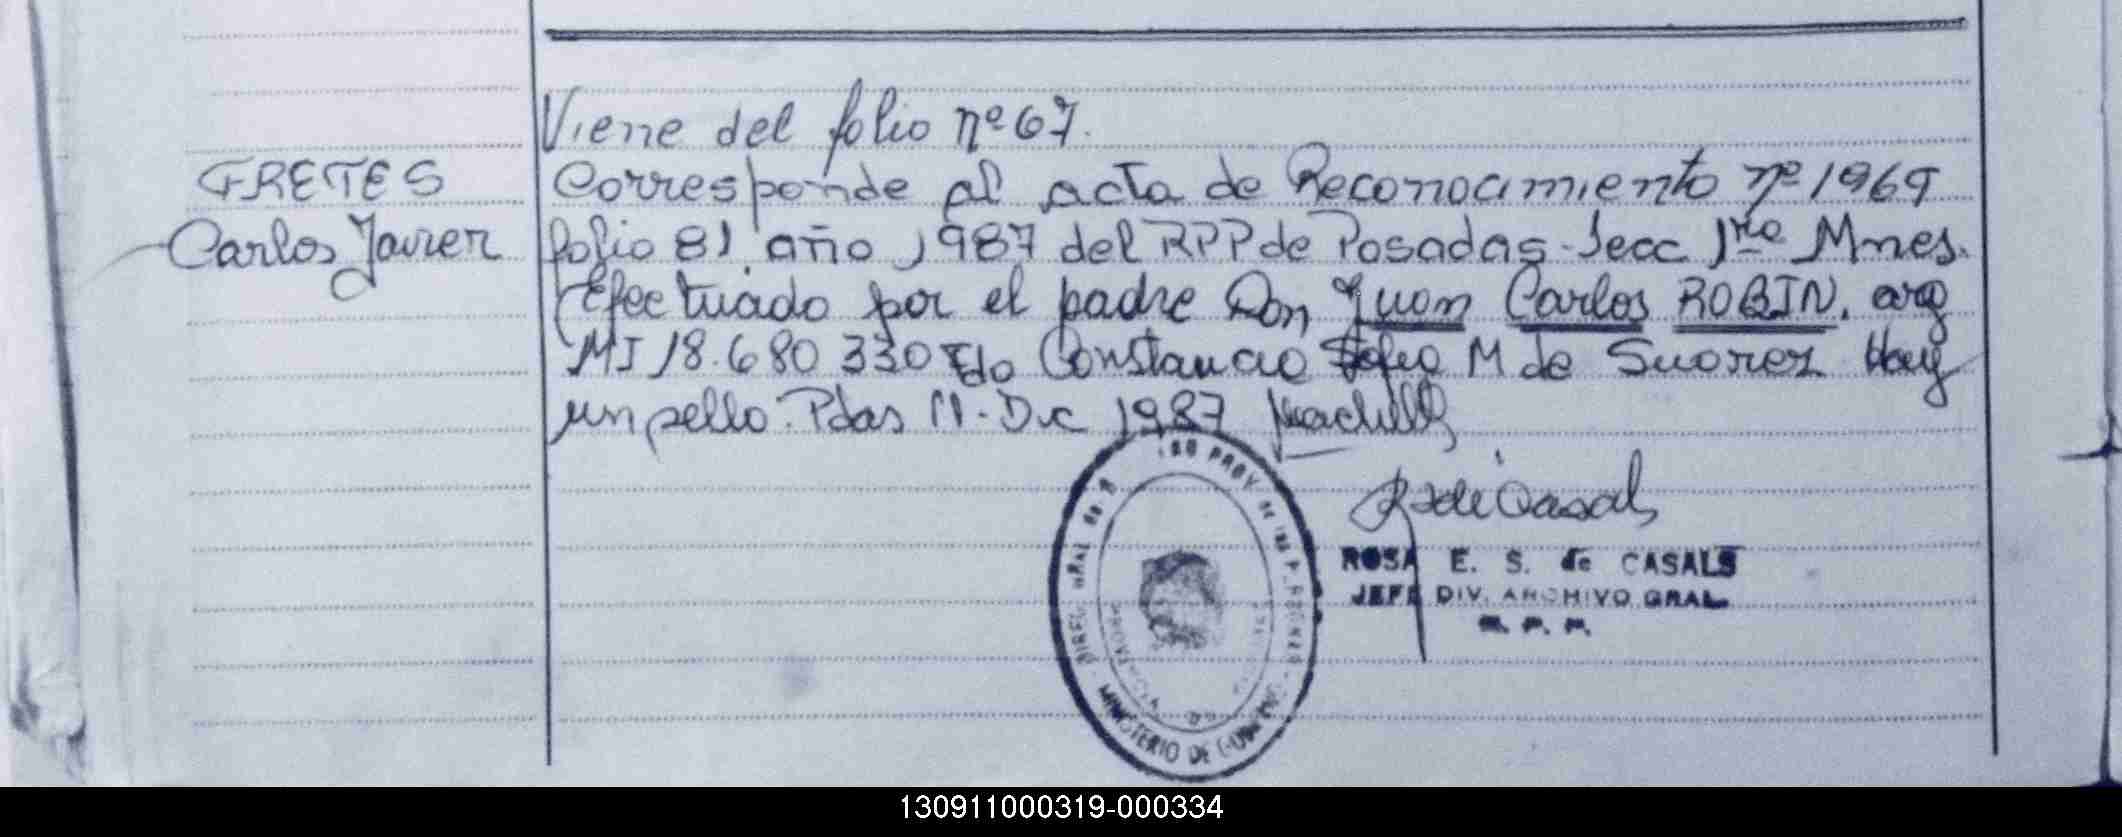 Viene del folio nº 67.
FRETES
Corresponde al acta de Reconocimiento nº 1969
Carlos Javier
folio 81 año 1987 del RPP de Posadas - Secc 1ra Mnes.
Efectuado por el padre Don Juan Carlos ROBIN, arg
MI 18.680 330 Fdo Constancio M de Suarez Hay
un sello. Pdas 11 - Dic 1987
R de Casals
ROSA E. S. de CASALS
JEFE DIV. ARCHIVO GRAL.
R. P. P.
PROV. de las PERSONAS
MINISTERIO DE GOBIERNO
130911000319-000334